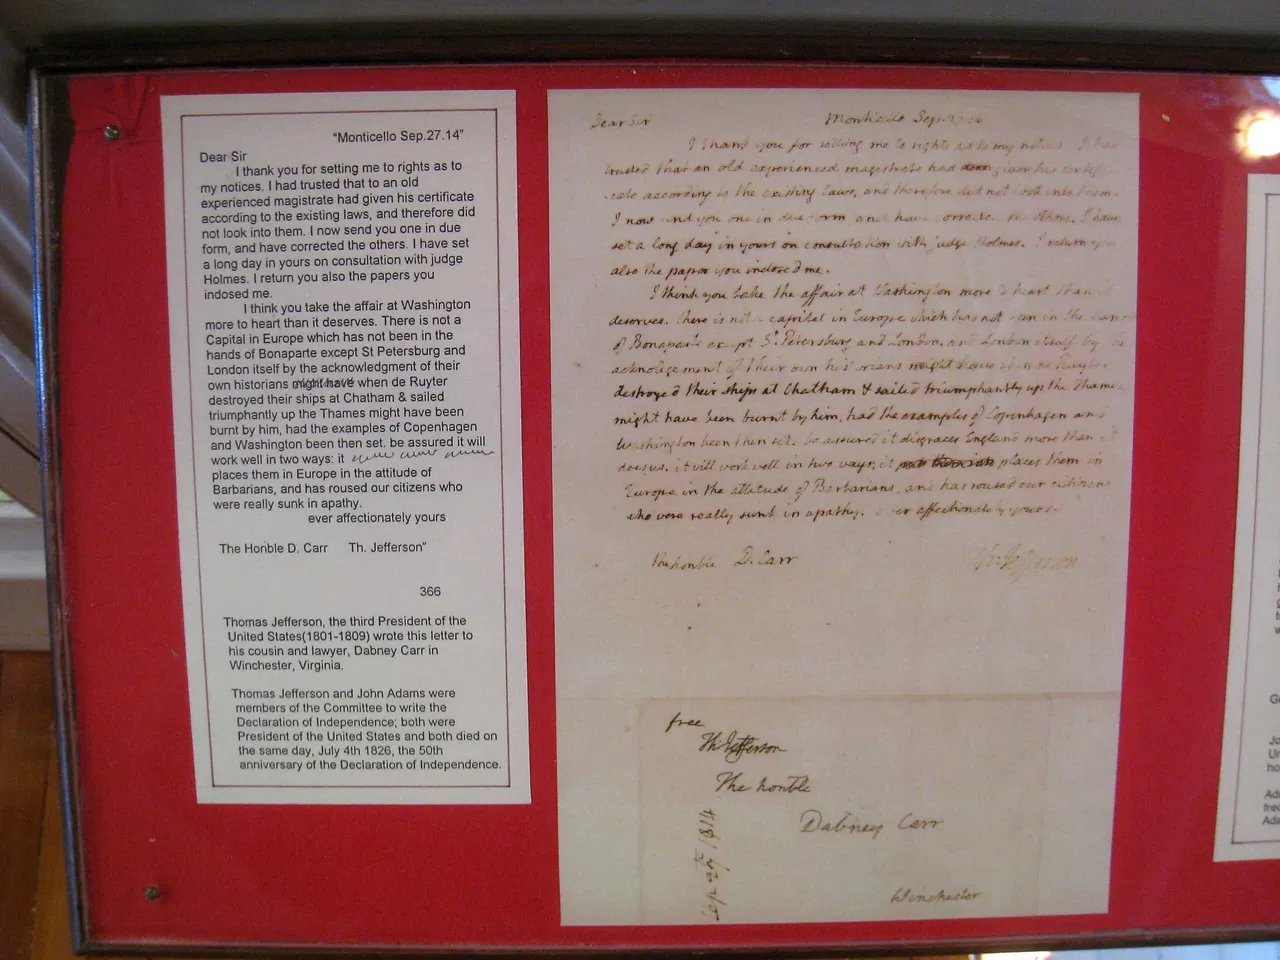 "Monticello Sep.27.14"
Dear Sir
I thank you for setting me to rights as to
my notices. I had trusted that to an old
experienced magistrate had given his certificate
according to the existing laws, and therefore did
not look into them. I now send you one in due
form, and have corrected the others. I have set
a long day in yours on consultation with judge
Holmes. I return you also the papers you
indosed me.
I think you take the affair at Washington
more to heart than it deserves. There is not a
Capital in Europe which has not been in the
hands of Bonaparte except St Petersburg and
London itself by the acknowledgment of their
own historians might have when de Ruyter
destroyed their ships at Chatham & sailed
triumphantly up the Thames might have been
burnt by him, had the examples of Copenhagen
and Washington been then set. be assured it will
work well in two ways: it
places them in Europe in the attitude of
Barbarians, and has roused our citizens who
were really sunk in apathy.
ever affectionately yours
The Honble D. Carr Th. Jefferson"
366
Thomas Jefferson, the third President of the
United States(1801-1809) wrote this letter to
his cousin and lawyer, Dabney Carr in
Winchester, Virginia.
Thomas Jefferson and John Adams were
members of the Committee to write the
Declaration of Independence; both were
President of the United States and both died on
the same day, July 4th 1826, the 50th
anniversary of the Declaration of Independence.
Dear Sir Monticello Sep.
I thank you for setting me to rights as to my notices. I had
trusted that an old experienced magistrate had given his
according to the existing laws, and therefore did not look into them.
I now send you one in due form and have the others. I have
set a long day in yours on consultation with judge Holmes. I return you
also the papers you inclosed me.
I think you take the affair at Washington more to heart than it
deserves. there is not a capital in Europe which has not been in the
of Bonaparte except St. Petersburg and London, and London itself by the
acknolegement of their own historians might have when de Ruyter
destroyed their ships at Chatham & sailed triumphantly up the Thames
might have been burnt by him, had the examples of Copenhagen and
Washington been then set. be assured it disgraces England more than it
does us. it will work well in two ways; it places them in
Europe in the attitude of Barbarians, and has roused our citizens
who were really sunk in apathy. ever affectionately yours
The honble D. Carr Th: Jefferson
free
Th: Jefferson
The honble
Dabney Carr
Winchester
1814